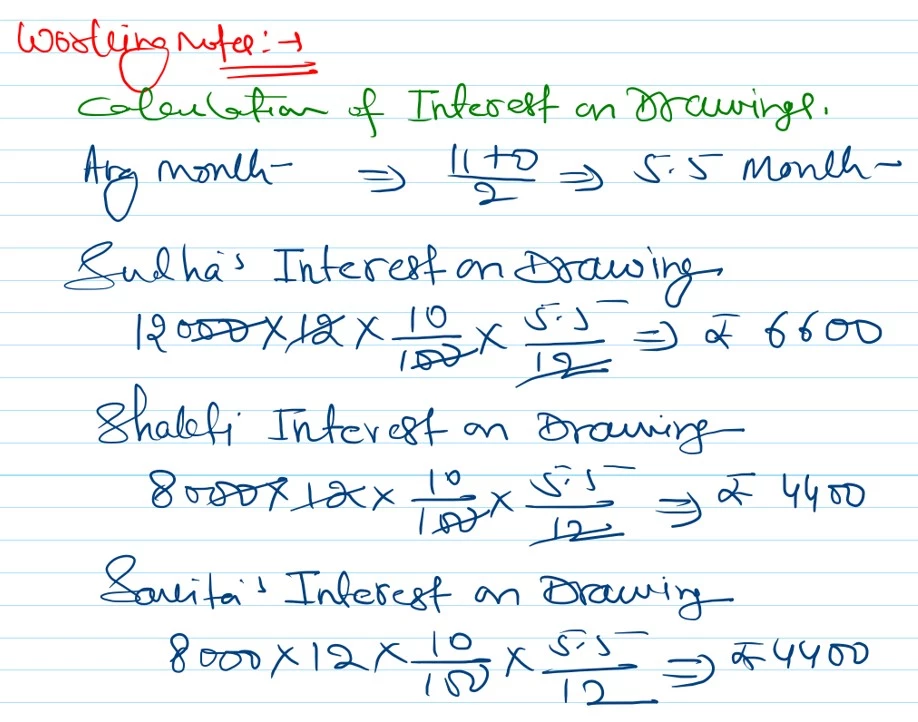 Working Notes:→
Calculation of Interest on Drawings.
Avg month ⇒ 11+0/2 ⇒ 5.5 Month
Sudha's Interest on Drawing
12000 × 12 × 10/100 × 5.5/12 ⇒ ₹ 6600
Shakti Interest on Drawing
8000 × 12 × 10/100 × 5.5/12 ⇒ ₹ 4400
Savita's Interest on Drawing
8000 × 12 × 10/100 × 5.5/12 ⇒ ₹ 4400